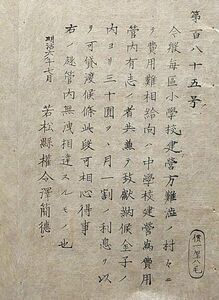 第百八十五号
今般毎区小学校建営方難渋ノ村々ニ
テ費用難相給向ハ中学校建営為費用
管内有志ノ者共兼テ致献納候金子ノ
内ヨリ三十圓ヲ月一割ノ利息ヲ以
ヲ可貸渡候條此段可相心得事
右ノ趣管内無洩相達スルモノ也
明治六年七月
若松縣權令澤簡徳